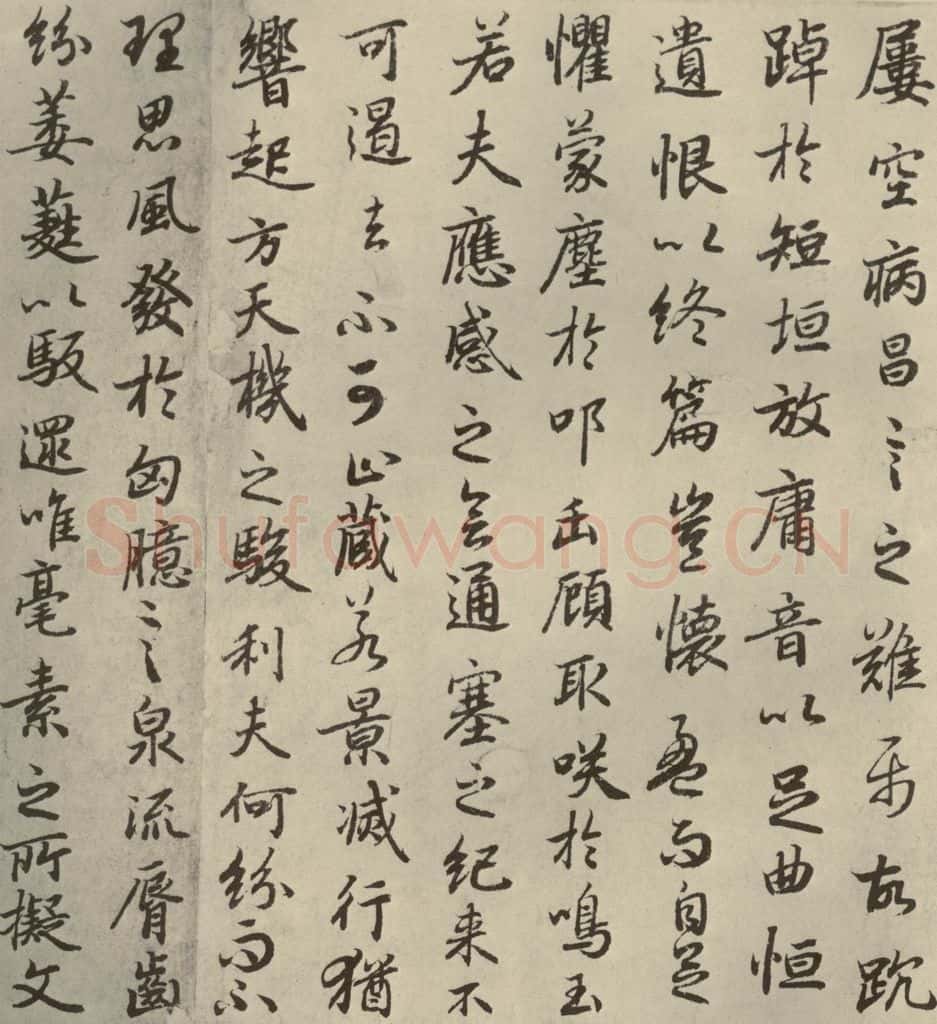 屢空病昌言之難屬故踸
踔於短垣放庸音以足曲恒
遺恨以終篇豈懷盈而自足
懼蒙塵於叩缶顧取咲於鳴玉
若夫應感之會通塞之紀来不
可遏去不可止藏若景滅行猶
響起方天機之駿利夫何紛而不
理思風發於匈臆言泉流脣齒
紛萎蕤以馺遝唯毫素之所擬文
Shufawang.CN